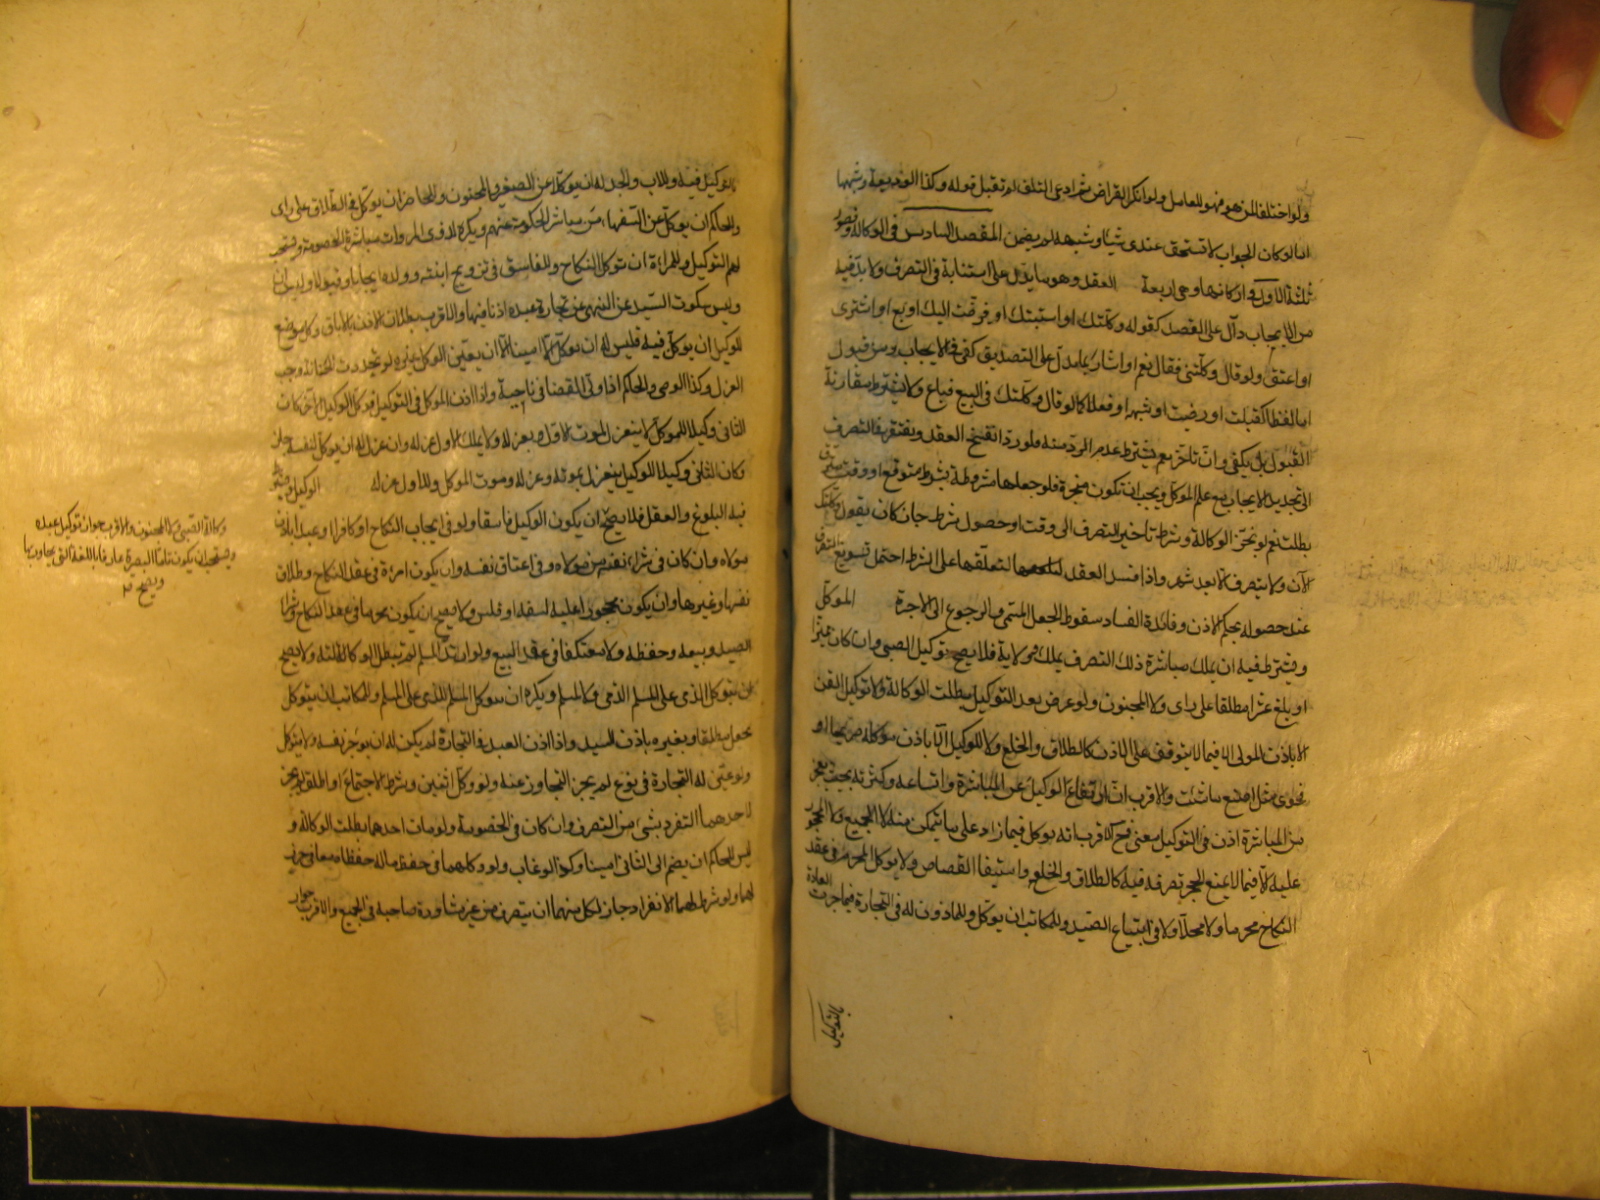 ولو اختلفا لمن هو منهو للعامل ولو انكر القراض ثم ادعى التلف لم تقبل قوله وكذا الوديعة وشبهها
اما لو كان الجواب لا تستحق عندى شيئا وشبهه لم يضمن المقصد السادس فى الوكالة وفصوله
ثلثة الاول فى اركانها وهى اربعة العقد وهو ما يدل على استنابة فى التصرف ولا بد فيه
من الايجاب دال على القصد كقوله وكلتك او استنبتك او فوضت اليك او بع او اشترى
او اعتق ولو قال وكلتنى فقال نعم او اشار بما يدل على التصديق كفى فى الايجاب ومن قبول
اما لفظا كقبلت او رضيت او شبهه او فعلا كما لو قال وكلتك فى البيع فباع ولا يشترط مقارنة
القبول بل يكفى وان تاخر نعم يشترط عدم الرد منه فلو رد انفسخ العقد ويفتقر فى التصرف
الى تجديد الايجاب مع علم الموكل ويجب ان تكون منجزة فلو جعلها مشروطة بشرط متوقع او وقت مترقب
بطلت نعم لو نجز الوكالة وشرط تاخير التصرف الى وقت او حصول شرط جاز كان يقول وكلتك
الآن ولا يتصرف الا بعد شهر واذا فسد العقد لتعلقها على الشرط احتمل تسويغ التصرف
عند حصوله بحكم الاذن وفائدة الفساد سقوط الجعل المسمى والرجوع الى الاجرة الموكل
ويشترط فيه ان يملك مباشرة ذلك التصرف بملك او ولاية فلا يصح توكيل الصبى وان كان مميزا
او بلغ عشرا مطلقا على راى ولا المجنون ولو عرض بعد التوكيل بطلت الوكالة ولا توكيل القن
الا باذن المولى الا فيما لا يتوقف على الاذن كالطلاق والخلع ولا الوكيل الا باذن موكله صريحا او
فحوى مثل اصنع ما شئت والاقرب ان ارتفاع الوكيل عن المباشرة واتساعه وكثرته بحيث يعجز
عن المباشرة اذن فى التوكيل معنى فح الاقرب انه يوكل فيما زاد على ما يتمكن منه لا الجميع ولا المحجور
عليه الا فيما لا يمنع الحجر تصرفه فيه كالطلاق والخلع واستيفا القصاص ولا يوكل المحرم فى عقد
النكاح محرما ولا محلا ولا فى ابتياع الصيد وللمكاتب ان يوكل وللماذون له فى التجارة فيما جرت العادة
بالتوكيل
بالتوكيل فيه وللاب والجد له ان يوكلا عن الصغير والمجنون وللحاضر ان يوكل فى الطلاق على راى
وللحاكم ان يوكل عن السفهاء من يباشر الحكومة عنهم ويكره لذوى المروات مباشرة الخصومة ويستحب
لهم التوكيل وللمراة ان توكل فى النكاح وللفاسق فى تزويج ابنته وولده ايجابا وقبولا
وليس سكوت السيد عن النهى عن تجارة عبده اذنا فيها والاقرب بطلان الاذن بالاباق وكل موضع
للوكيل ان يوكل فيه فليس له ان يوكل الا امينا الا ان يعين الموكل غيره لو تجددت الخيانة وجب
العزل وكذا الوصى والحاكم اذا ولى القضا فى ناحية واذا اذن الموكل فى التوكيل فوكل الوكيل آخر كان
الثانى وكيلا للموكل لا ينعزل بموت الاول ولا بعزله ولا يملك الاول عزله وان عزل له ان يوكل لنفسه جاز
وكان الثانى وكيلا للوكيل ينعزل بموته وعزله وموت الموكل وللاول عزله الوكيل ويشترط
فيه البلوغ والعقل فلا يصح ان يكون الوكيل فاسقا ولو فى ايجاب النكاح او كافرا او عبدا باذن
مولاه وان كان فى شراء نفسه من مولاه وفى اعتاق نفسه وان يكون امراة فى عقد النكاح وطلاق
نفسها وغيرها وان يكون محجورا عليه لسفه او فلس ولا يصح ان يكون محرما فى عقد النكاح وشراء
الصيد وبيعه وحفظه ولا معتكفا فى عقد البيع ولو ارتد المسلم لم تبطل الوكالة ولا يصح
ان يتوكل الذمى على المسلم للذمى ولا للمسلم ويكره ان يتوكل المسلم للذمى على المسلم وللمكاتب ان يتوكل
بجعل مطلقا وبغيره باذن السيد واذا اذن العبده فى التجارة لم يكن له ان يوجر نفسه ولا يتوكل
ولو عين له التجارة فى نوع لم يجز التجاوز عنه ولو وكل اثنين وشرط الاجتماع او اطلق لم يجز
لاحدهما التفرد بشىء من التصرف وان كان فى الخصومة ولو مات احدهما بطلت الوكالة و
ليس للحاكم ان يضم الى الثانى امينا وكذا لو غاب ولو وكلهما فى حفظ ماله حفظاه معا فى حرز
لهما ولو شرط لهما الانفراد جاز لكل منهما ان يتصرف من غير مشاورة صاحبه فى الجميع والاقرب جواز
وكالة الصبى ولا المجنون والاقرب جواز توكيل عبده
ويستحب ان يكون تام البصيرة عارفا باللغة التى يحاور بها
ويصح